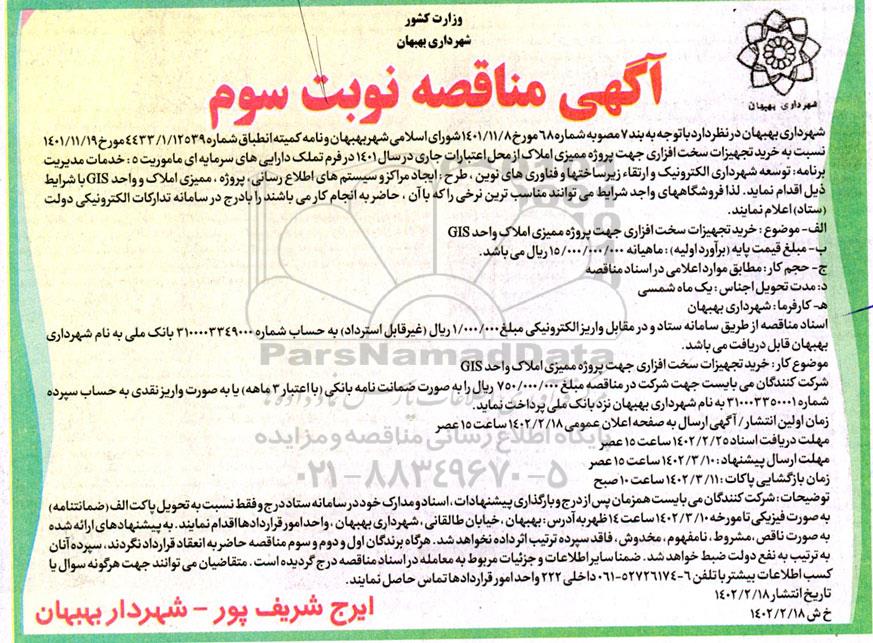 وزارت کشور
شهرداری بهبهان
شهرداری بهبهان
آگهی مناقصه نوبت سوم
شهرداری بهبهان در نظر دارد با توجه به بند ۷ مصوبه شماره ۶۸ مورخ ۱۴۰۱/۱۱/۸ شورای اسلامی شهر بهبهان و نامه کمیته انطباق شماره ۴۴۳۳/۱/۱۲۵۳۹ مورخ ۱۴۰۱/۱۱/۱۹
نسبت به خرید تجهیزات سخت افزاری جهت پروژه ممیزی املاک از محل اعتبارات جاری در سال ۱۴۰۱ در فرم تملک دارایی های سرمایه ای ماموریت ۵ : خدمات مدیریت
برنامه : توسعه شهرداری الکترونیک و ارتقاء زیرساختها و فناوری های نوین ، طرح : ایجاد مراکز و سیستم های اطلاع رسانی ، پروژه ، ممیزی املاک و واحد GIS با شرایط
ذیل اقدام نماید. لذا فروشگاههای واجد شرایط می توانند مناسب ترین نرخی را که با آن ، حاضر به انجام کار می باشند را با درج در سامانه تدارکات الکترونیکی دولت
(ستاد) اعلام نمایند.
الف- موضوع : خرید تجهیزات سخت افزاری جهت پروژه ممیزی املاک واحد GIS
ب- مبلغ قیمت پایه (برآورد اولیه) : ماهیانه ۱۵/۰۰۰/۰۰۰/۰۰۰ ریال می باشد.
ج- حجم کار : مطابق موارد اعلامی در اسناد مناقصه
د: مدت تحویل اجناس : یک ماه شمسی
هـ- کارفرما : شهرداری بهبهان
اسناد مناقصه از طریق سامانه ستاد و در مقابل واریز الکترونیکی مبلغ ۱/۰۰۰/۰۰۰ ریال (غیرقابل استرداد) به حساب شماره ۳۱۰۰۰۰۳۳۴۹۰۰۰ بانک ملی به نام شهرداری
بهبهان قابل دریافت می باشد.
موضوع کار : خرید تجهیزات سخت افزاری جهت پروژه ممیزی املاک واحد GIS
شرکت کنندگان می بایست جهت شرکت در مناقصه مبلغ ۷۵۰/۰۰۰/۰۰۰ ریال را به صورت ضمانت نامه بانکی (با اعتبار ۳ ماهه) یا به صورت واریز نقدی به حساب سپرده
شماره ۳۱۰۰۰۳۳۵۰۰۰۱ به نام شهرداری بهبهان نزد بانک ملی پرداخت نماید.
زمان اولین انتشار / آگهی ارسال به صفحه اعلان عمومی ۱۴۰۲/۲/۱۸ ساعت ۱۵ عصر
مهلت دریافت اسناد ۱۴۰۲/۲/۲۵ ساعت ۱۵ عصر
مهلت ارسال پیشنهاد : ۱۴۰۲/۳/۱۰ ساعت ۱۵ عصر
زمان بازگشایی پاکات : ۱۴۰۲/۳/۱۱ ساعت ۱۰ صبح
توضیحات : شرکت کنندگان می بایست همزمان پس از درج و بارگذاری پیشنهادات ، اسناد و مدارک خود در سامانه ستاد درج و فقط نسبت به تحویل پاکت الف (ضمانتنامه)
به صورت فیزیکی تا مورخه ۱۴۰۲/۳/۱۰ ساعت ۱۴ ظهر به آدرس : بهبهان ، خیابان طالقانی ، شهرداری بهبهان ، واحد امور قراردادها اقدام نمایند. به پیشنهادهای ارائه شده
به صورت ناقص، مشروط ، نامفهوم ، مخدوش ، فاقد سپرده ترتیب اثر داده نخواهد شد. هرگاه برندگان اول و دوم و سوم مناقصه حاضر به انعقاد قرارداد نگردند ، سپرده آنان
به ترتیب به نفع دولت ضبط خواهد شد. ضمنا سایر اطلاعات و جزئیات مربوط به معامله در اسناد مناقصه درج گردیده است . متقاضیان می توانند جهت هرگونه سوال یا
کسب اطلاعات بیشتر با تلفن ۶-۰۶۱۵۲۷۲۶۱۷۴ داخلی ۲۲۲ واحد امور قراردادها تماس حاصل نمایند.
تاریخ انتشار ۱۴۰۲/۲/۱۸
خ ش ۱۴۰۲/۲/۱۸
ایرج شریف پور - شهردار بهبهان
ParsNamadData
پایگاه اطلاع رسانی مناقصه و مزایده
۰۲۱-۸۸۳۴۹۶۷۰-۵